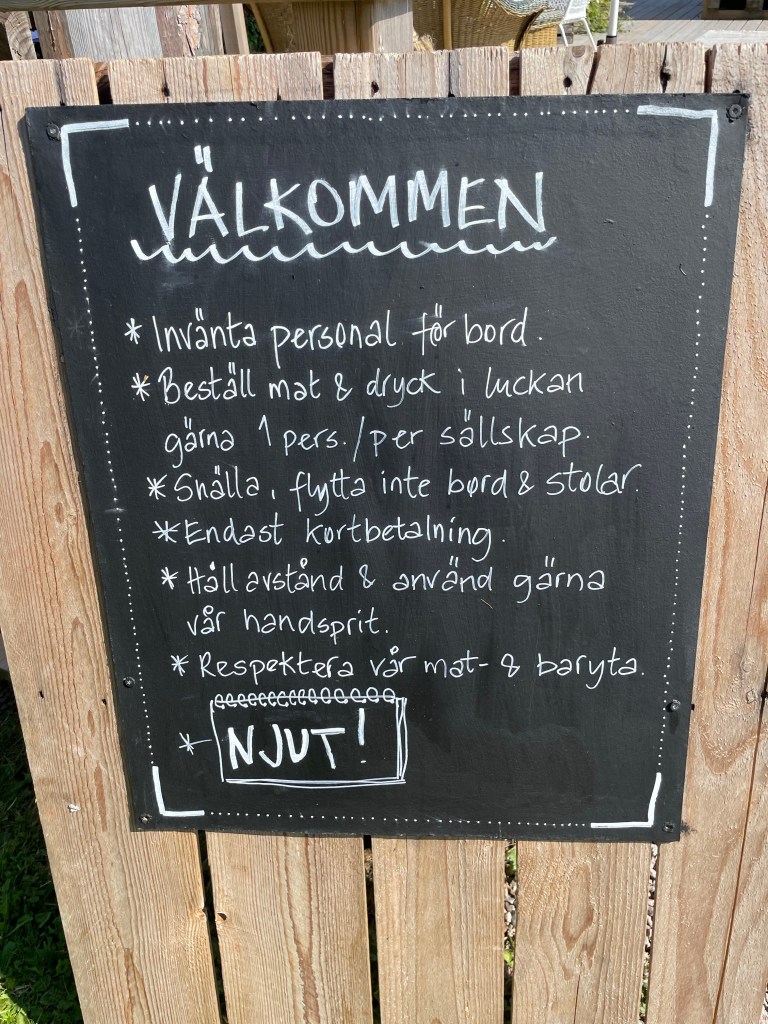 VÄLKOMMEN
* Invänta personal för bord.
* Beställ mat & dryck i luckan
gärna 1 pers./per sällskap.
* Snälla, flytta inte bord & stolar.
* Endast kortbetalning.
* Håll avstånd & använd gärna
vår handsprit.
* Respektera vår mat- & baryta.
* NJUT!